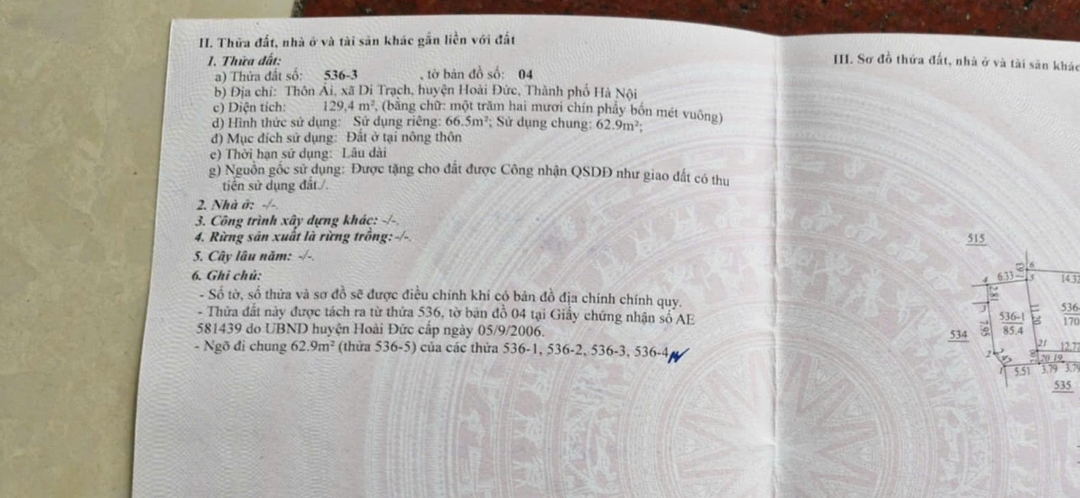 II. Thửa đất, nhà ở và tài sản khác gắn liền với đất
1. Thửa đất:
a) Thửa đất số: 536-3 , tờ bản đồ số: 04
b) Địa chỉ: Thôn Ải, xã Di Trạch, huyện Hoài Đức, Thành phố Hà Nội
c) Diện tích: 129,4 m², (bằng chữ: một trăm hai mươi chín phẩy bốn mét vuông)
d) Hình thức sử dụng: Sử dụng riêng: 66.5m²; Sử dụng chung: 62.9m²;
đ) Mục đích sử dụng: Đất ở tại nông thôn
e) Thời hạn sử dụng: Lâu dài
g) Nguồn gốc sử dụng: Được tặng cho đất được Công nhận QSDĐ như giao đất có thu
tiền sử dụng đất./.
2. Nhà ở: -/-.
3. Công trình xây dựng khác: -/-.
4. Rừng sản xuất là rừng trồng: -/-.
5. Cây lâu năm: -/-.
6. Ghi chú:
- Số tờ, số thửa và sơ đồ sẽ được điều chỉnh khi có bản đồ địa chính chính quy.
- Thửa đất này được tách ra từ thửa 536, tờ bản đồ 04 tại Giấy chứng nhận số AE
581439 do UBND huyện Hoài Đức cấp ngày 05/9/2006.
- Ngõ đi chung 62.9m² (thửa 536-5) của các thửa 536-1, 536-2, 536-3, 536-4
III. Sơ đồ thửa đất, nhà ở và tài sản khác
515
6
4 6.33 5 14.33
2.81
536-1
85.4
11.20
536-
170
534
7.95
2
21 12.77
20 19
1 5.51 3.79 3.79
535